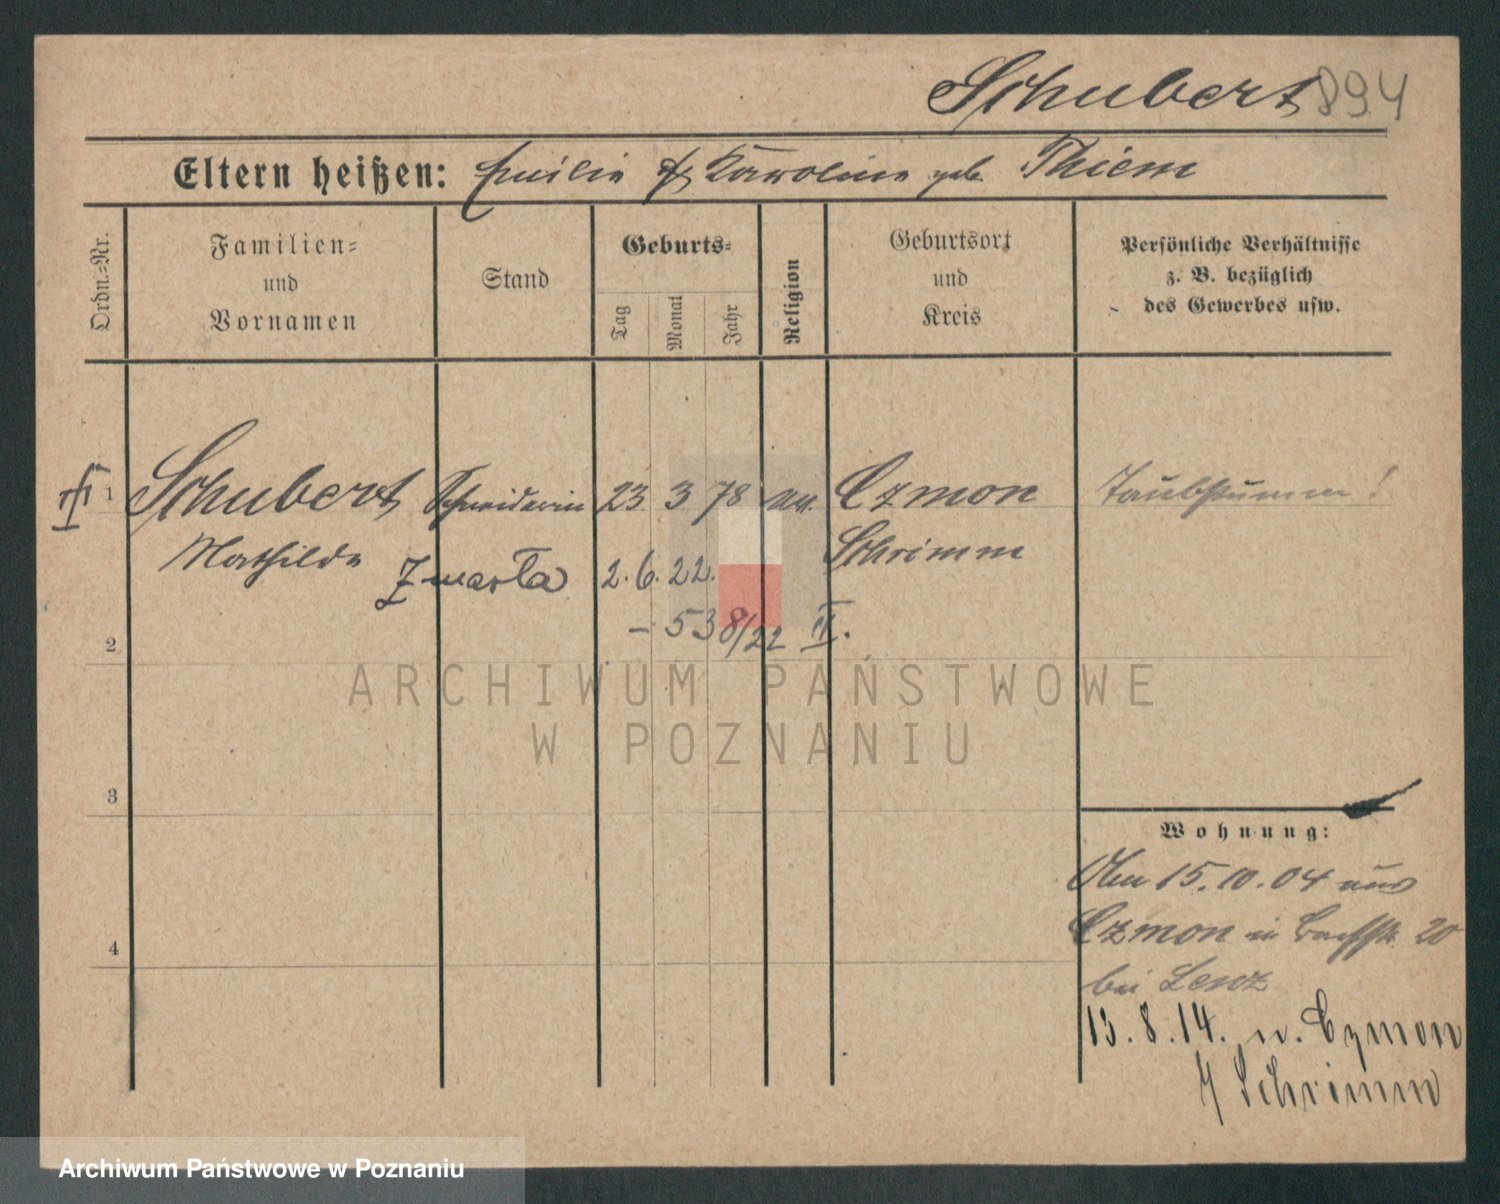 Schubert 894
Eltern heißen: Emilie & Karoline geb. Thiem
Ordn.-Nr.
Familien-
und
Vornamen
Stand
Geburts-
Tag
Monat
Jahr
Religion
Geburtsort
und
Kreis
Persönliche Verhältnisse
z. B. bezüglich
des Gewerbes usw.
1 Schubert Schneiderin 23 3 78 Czmon Taubstumm!
Mathilde Schrimm
Zmarła 2.6.22.
- 538/22 II.
2
ARCHIWUM PAŃSTWOWE
W POZNANIU
3
Wohnung:
15.10.04 aus
Czmon in Bachstr. 20
bei Lenz
4
13.8.14. n. Czmon
Schrimm
Archiwum Państwowe w Poznaniu